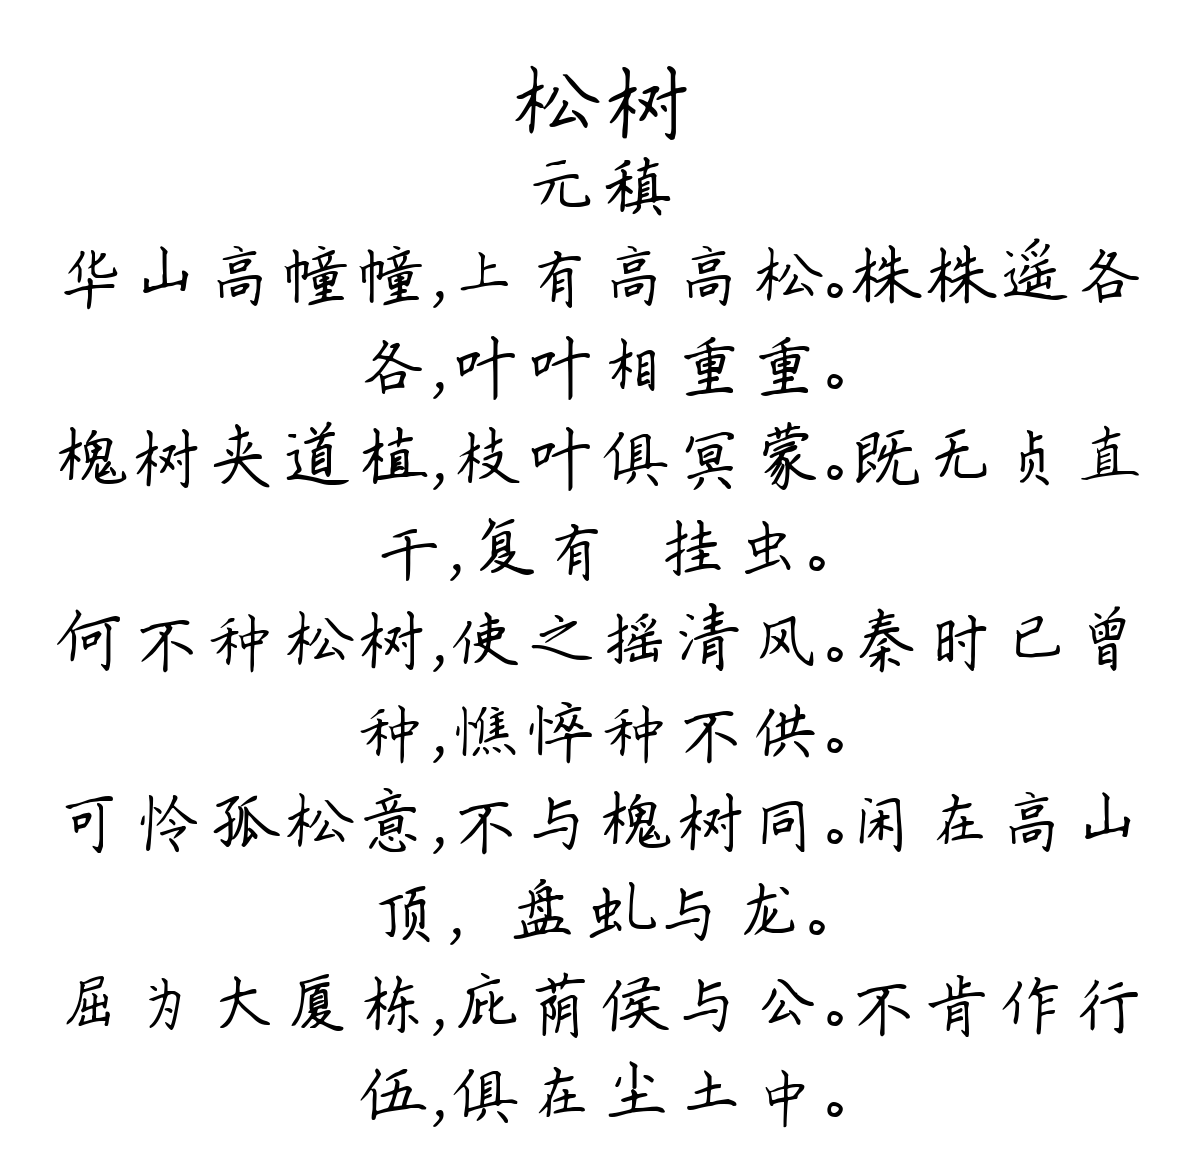 松树
元稹
华山高幢幢,上有高高松。株株遥各
各,叶叶相重重。
槐树夹道植,枝叶俱冥蒙。既无贞直
干,复有 挂虫。
何不种松树,使之摇清风。秦时已曾
种,憔悴种不供。
可怜孤松意,不与槐树同。闲在高山
顶，盘虬与龙。
屈为大厦栋,庇荫侯与公。不肯作行
伍,俱在尘土中。